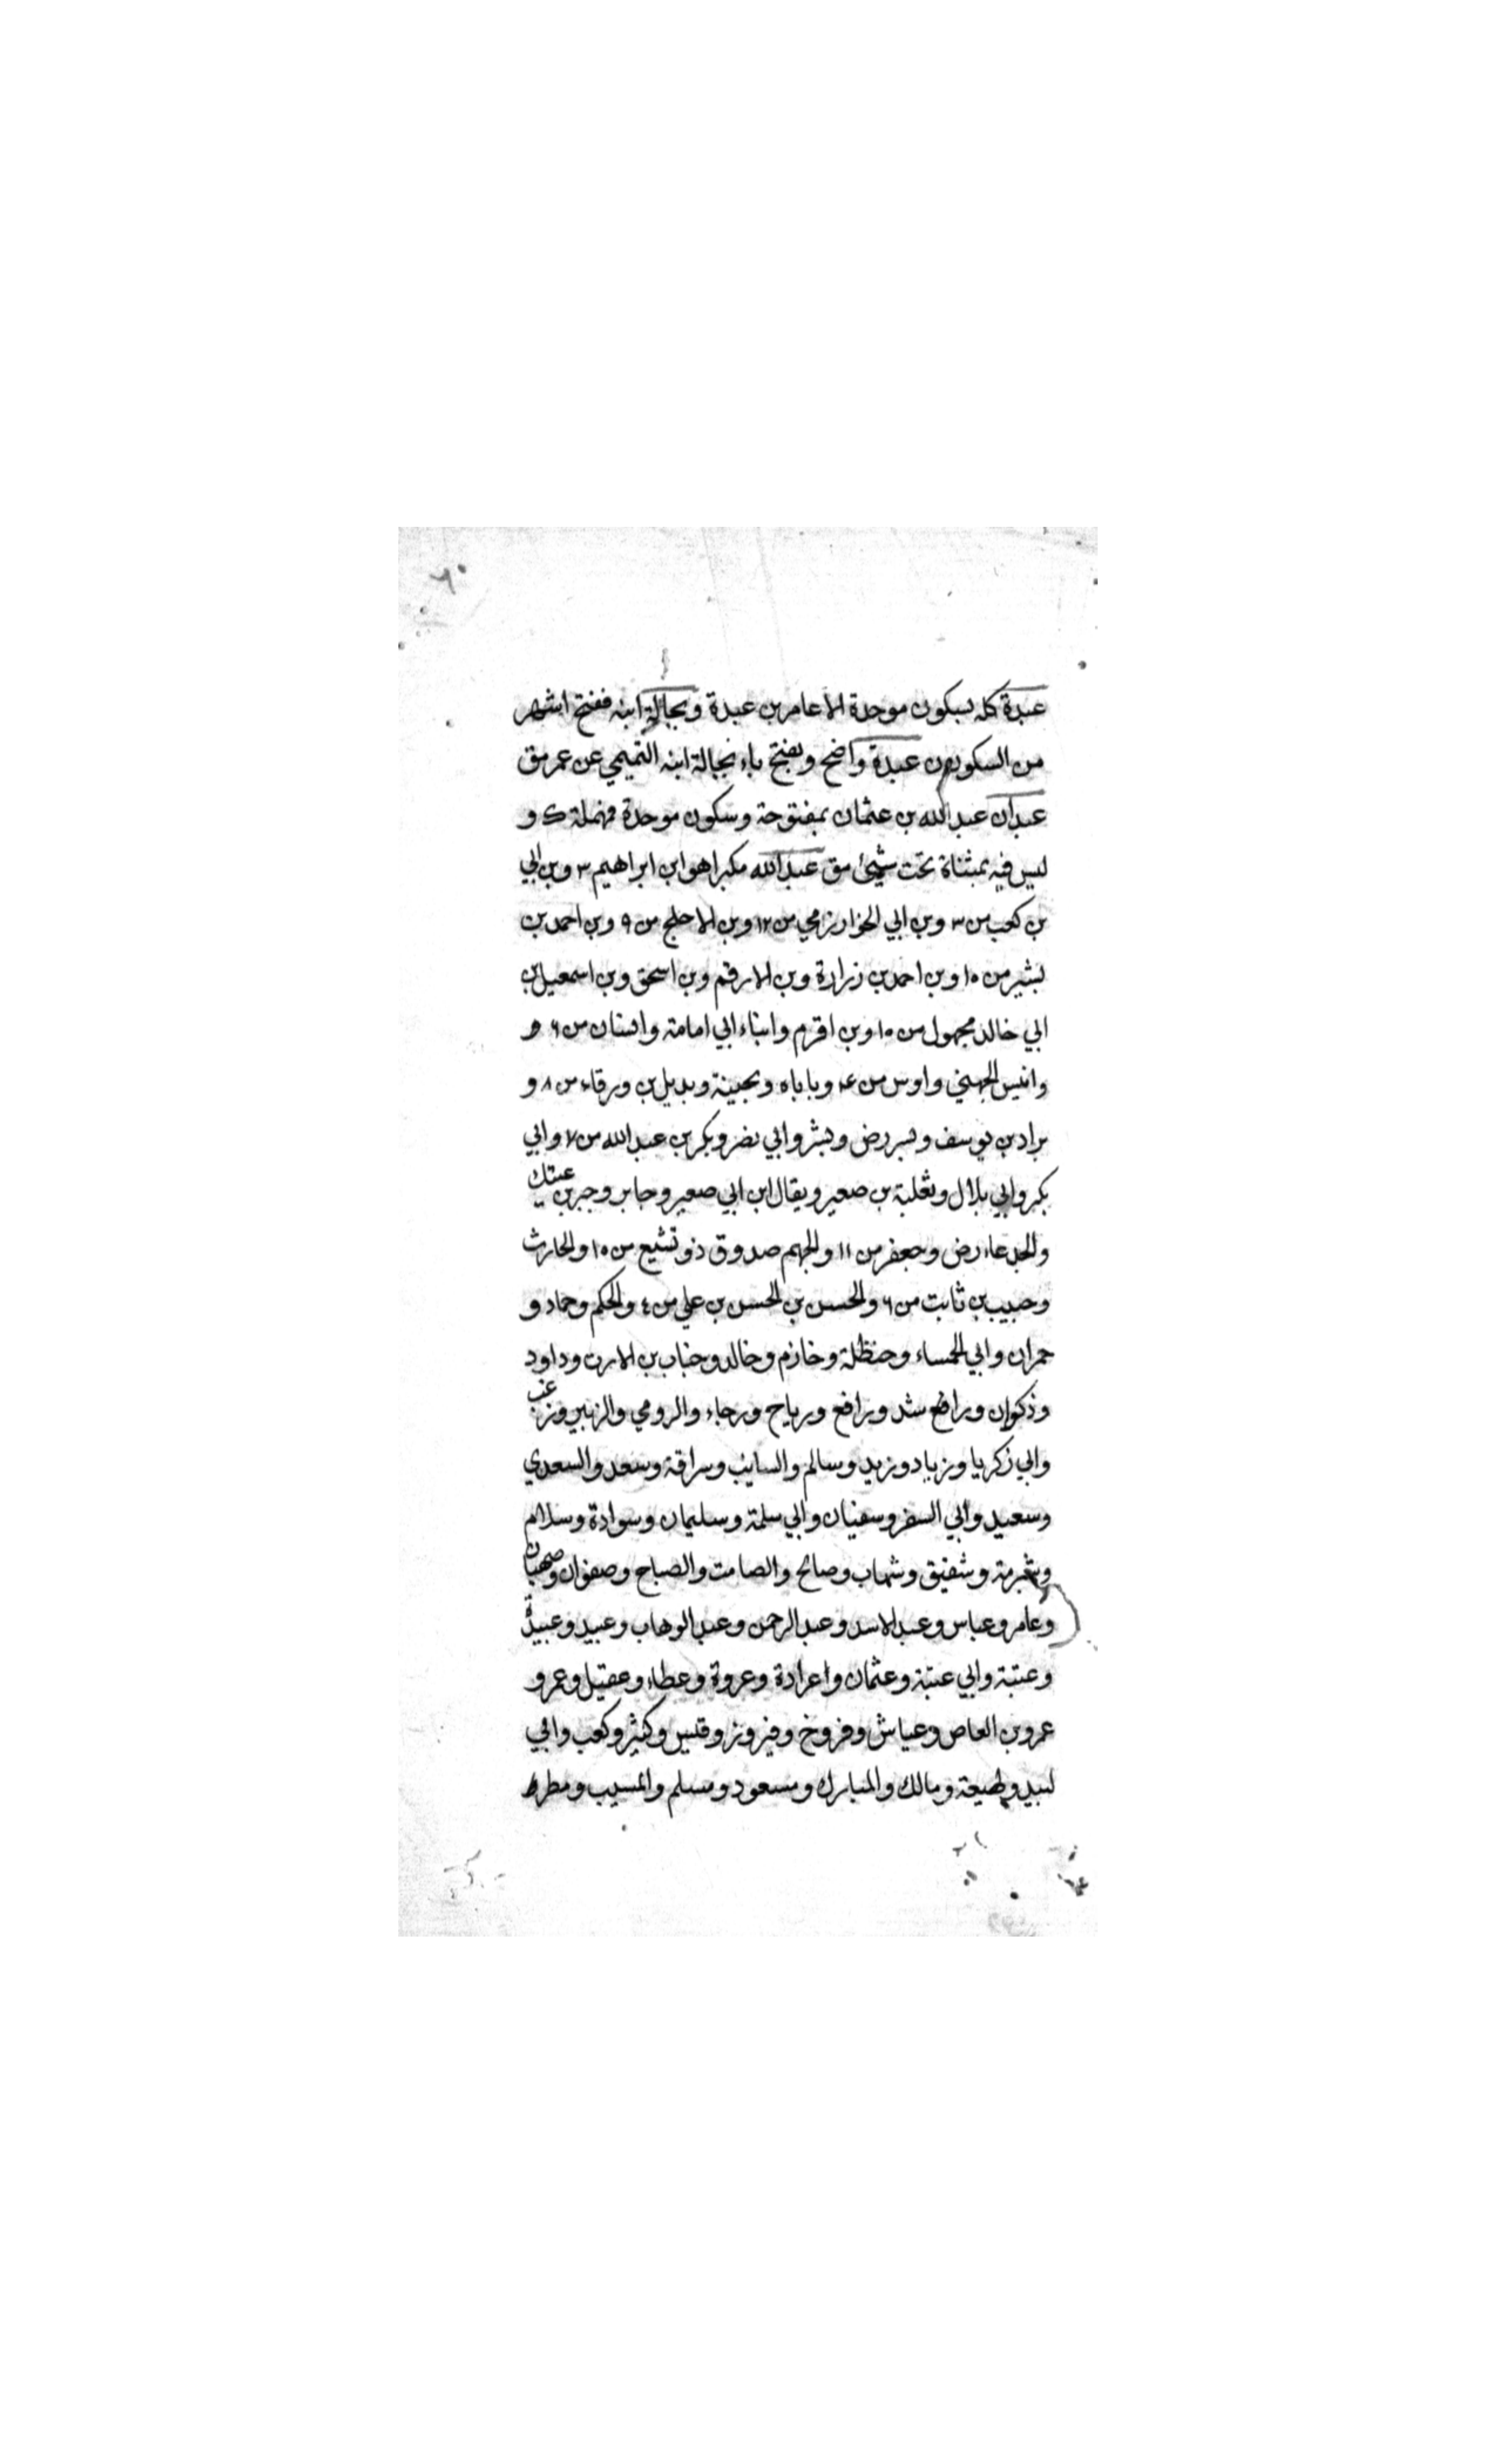 ٦٠
عبدة كله بسكون موحدة الا عامر بن عبدة وبجالة ابنه ففتح اشهر
من السكون عبدة واضح وبفتح باء بجالة ابنه التميمي عن عمر مق
عبدان عبد الله بن عثمان بمفتوحة وسكون موحدة فمهملة ك و
ليس فيه بمثناة تحت شيئ مق عبد الله مكبرا هو ابن ابراهيم ٣ وبن ابي
بن كعب من ٣ وبن ابي الخوارزمي من ١٢ وبن الاجلح من ٩ وبن احمد بن
بشير من ١٠ وبن احمد بن زرارة وبن الارقم وبن اسحق وبن اسمعيل بن
ابي خالد مجهول من ١٠ وبن اقرم وابناء ابي امامة وانسان من ٦ و
وانيس الجهني واوس من ٤ وباباه وبحينة وبديل بن ورقاء من ٨ و
براد بن يوسف وبسر رض وبشر وابي نضر وبكر بن عبد الله من ٧ وابي
بكر وابي بلال وثعلبة بن صعير ويقال ابن ابي صعير وجابر وجبر بن عتيك
والجدعاء رض وجعفر من ١١ والجهم صدوق ذو تشيع من ١٠ والحارث
وحبيب بن ثابت من ٦ والحسن بن الحسن بن علي من ٤ والحكم وحماد و
حمران وابي الحمساء وحنظلة وخازم وخالد وخباب بن الارت وداود
وذكوان ورافع سند ورافع ورباح ورجاء والرومي والزبير وزغب
وابي زكريا وزياد وزيد وسالم والسايب وسراقة وسعد والسعدي
وسعيد وابي السفر وسفيان وابي سلمة وسليمان وسوادة وسلام
وشبرمة وشقيق وشهاب وصالح والصامت والصباح وصفوان وصهبان
وعامر وعباس وعبد الاسد وعبد الرحمن وعبد الوهاب وعبيد وعبيدة
وعتبة وابي عتبة وعثمان واعرادة وعروة وعطاء وعقيل وعمر و
عمرو بن العاص وعياش وفروخ وفيروز وقيس وكثير وكعب وابي
لبيد ولهيعة ومالك والمبارك ومسعود ومسلم والمسيب ومطر